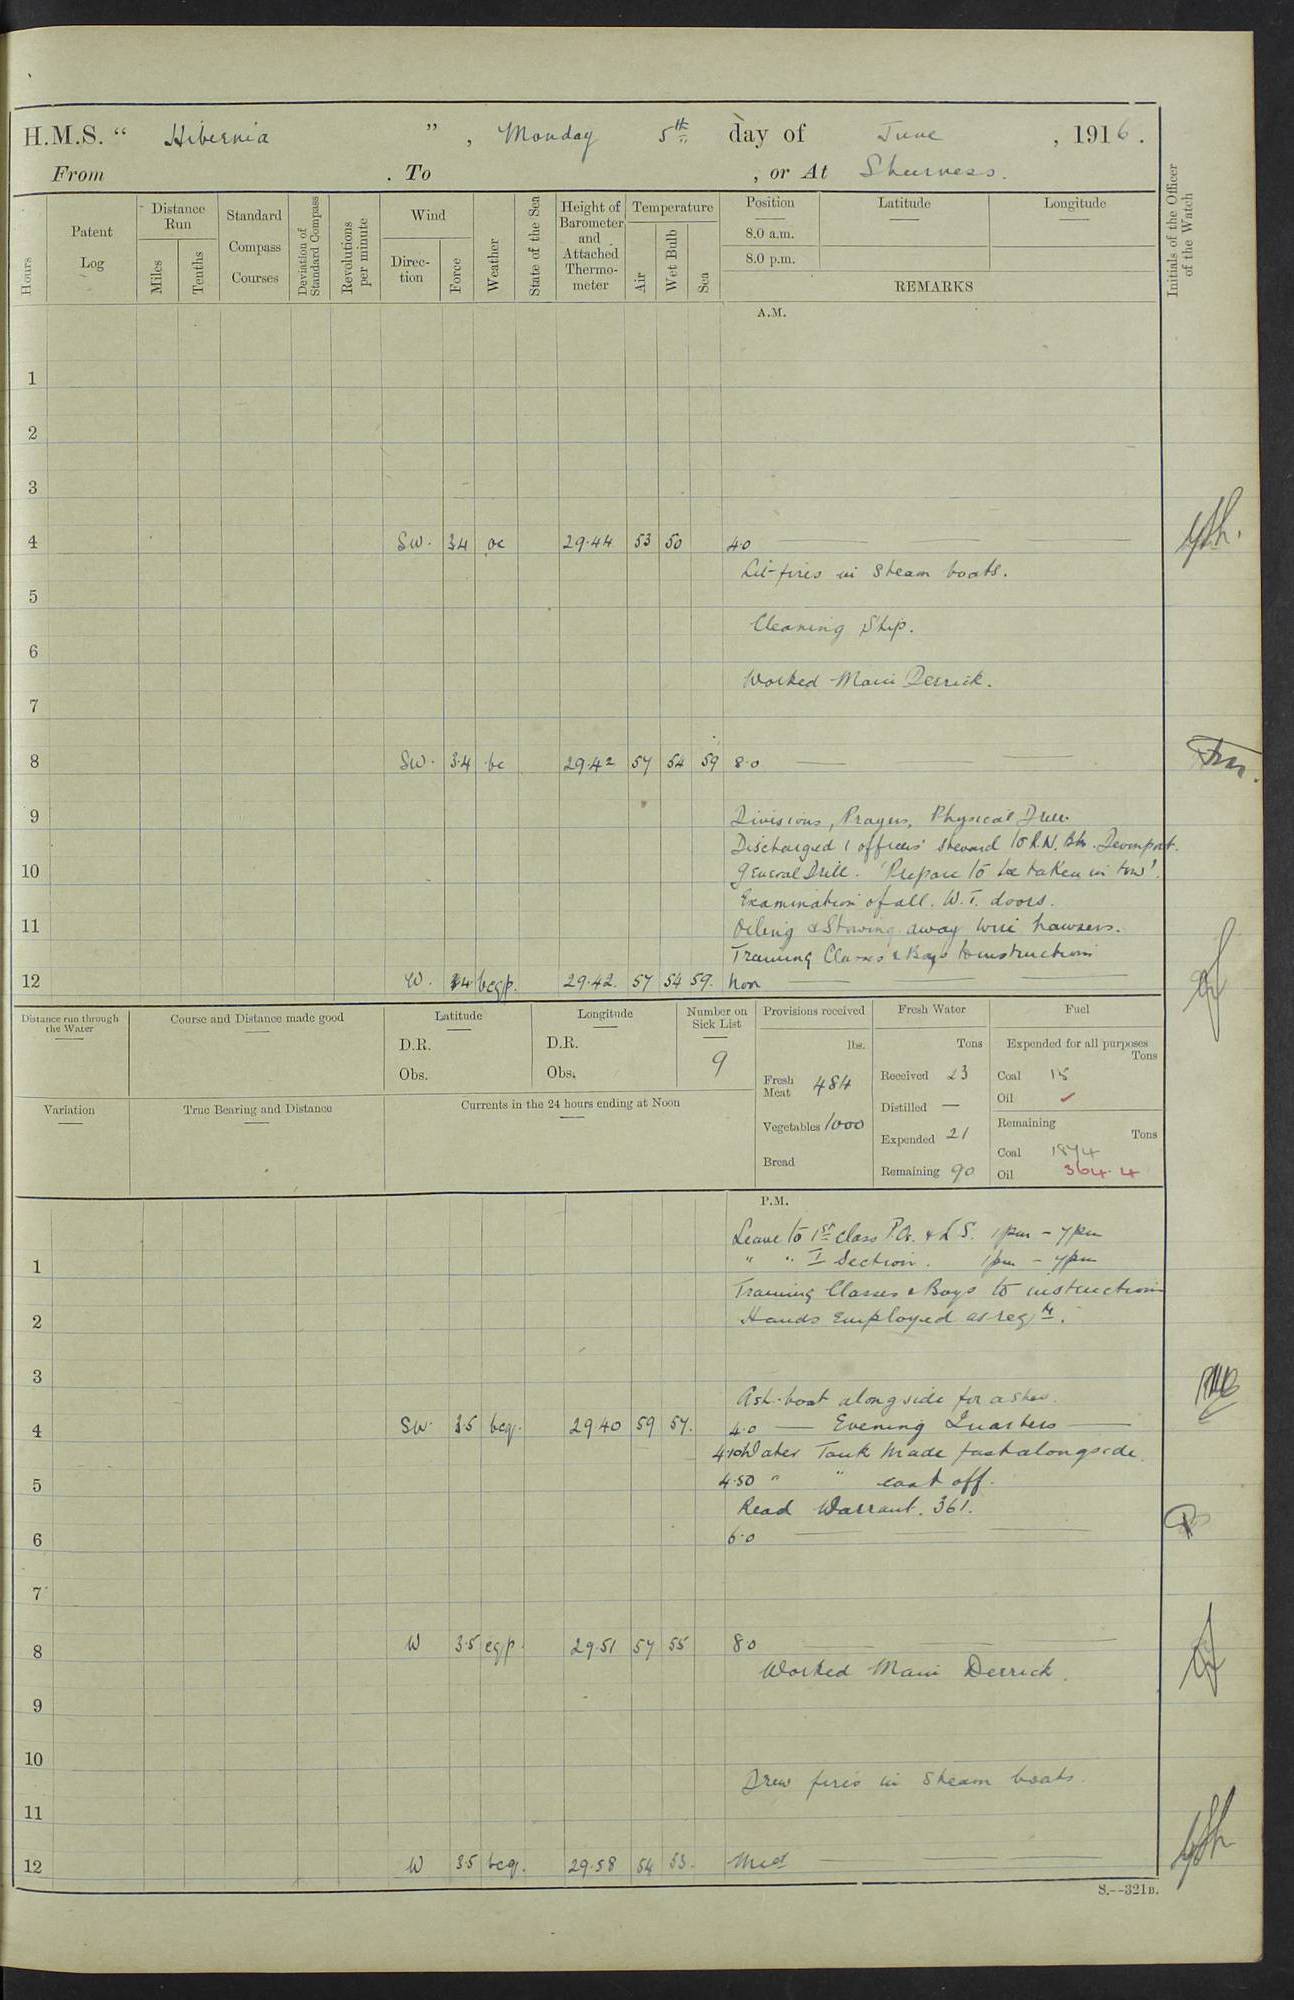 H.M.S. “ Hibernia ” , Monday 5th day of June , 1916 .
From . To , or At Sheerness.
Hours
Patent Log
Distance Run
Miles
Tenths
Standard Compass Courses
Deviation of Standard Compass
Revolutions per minute
Wind
Direction
Force
Weather
State of the Sea
Height of Barometer and Attached Thermometer
Temperature
Air
Wet Bulb
Sea
Position
8.0 a.m.
8.0 p.m.
Latitude
Longitude
REMARKS
Initials of the Officer of the Watch
A.M.
1
2
3
4 SW. 3.4 oc 29.44 53 50 4.0
Lit fires in steam boats.
5
Cleaning Ship.
6
Worked Main Derrick.
7
8 SW. 3.4 bc 29.42 57 54 59 8.0
9 Divisions, Prayers, Physical Drill
Discharged 1 officers' steward to R.N. Bks. Devonport.
10 General Drill. 'Prepare to be taken in tow'.
Examination of all. W.T. doors.
11 Oiling & Stowing away wire hawsers.
Training Classes & Boys to instruction
12 W. 4 bcqp. 29.42. 57 54 59. Noon
Distance run through the Water
Course and Distance made good
Latitude
D.R.
Obs.
Longitude
D.R.
Obs.
Number on Sick List
9
Provisions received
lbs.
Fresh Meat 484
Vegetables 1000
Bread
Fresh Water
Tons
Received 23
Distilled —
Expended 21
Remaining 90
Fuel
Expended for all purposes
Tons
Coal 15
Oil
Remaining
Tons
Coal 1874
Oil 364.4
Variation
True Bearing and Distance
Currents in the 24 hours ending at Noon
P.M.
Leave to 1st class P.O. & L.S. 1pm - 7pm
1 " " I Section. 1pm - 7pm
Training Classes & Boys to instruction
2 Hands employed as reqte.
3
Ash-boat alongside for ashes.
4 SW. 3.5 bcq. 29.40 59 57. 4.0 — Evening Quarters —
4.10 Water Tank made fast alongside.
5 4.50 " " cast off.
Read Warrant. 361.
6 6.0
7
8 W 3.5 cqp 29.51 57 55 8.0
Worked Main Derrick.
9
10
Drew fires in steam boats.
11
12 W 3.5 bcq. 29.58 54 53. Midt
S.--321B.